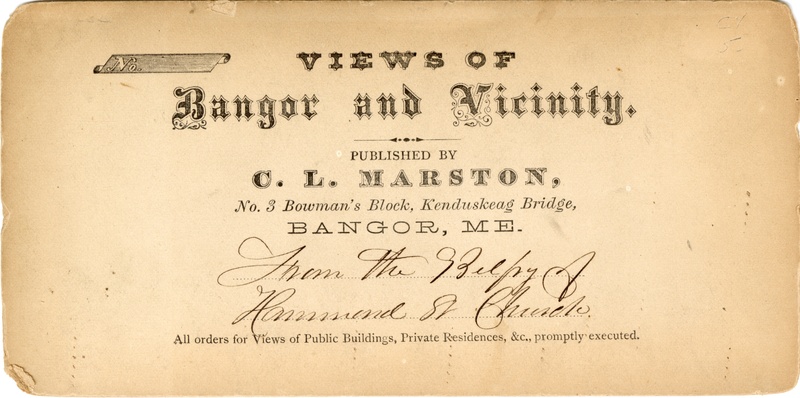 No.
VIEWS OF
Bangor and Vicinity.
PUBLISHED BY
C. L. MARSTON,
No. 3 Bowman's Block, Kenduskeag Bridge,
BANGOR, ME.
From the Belfry of
Hammond St Church.
All orders for Views of Public Buildings, Private Residences, &c., promptly executed.